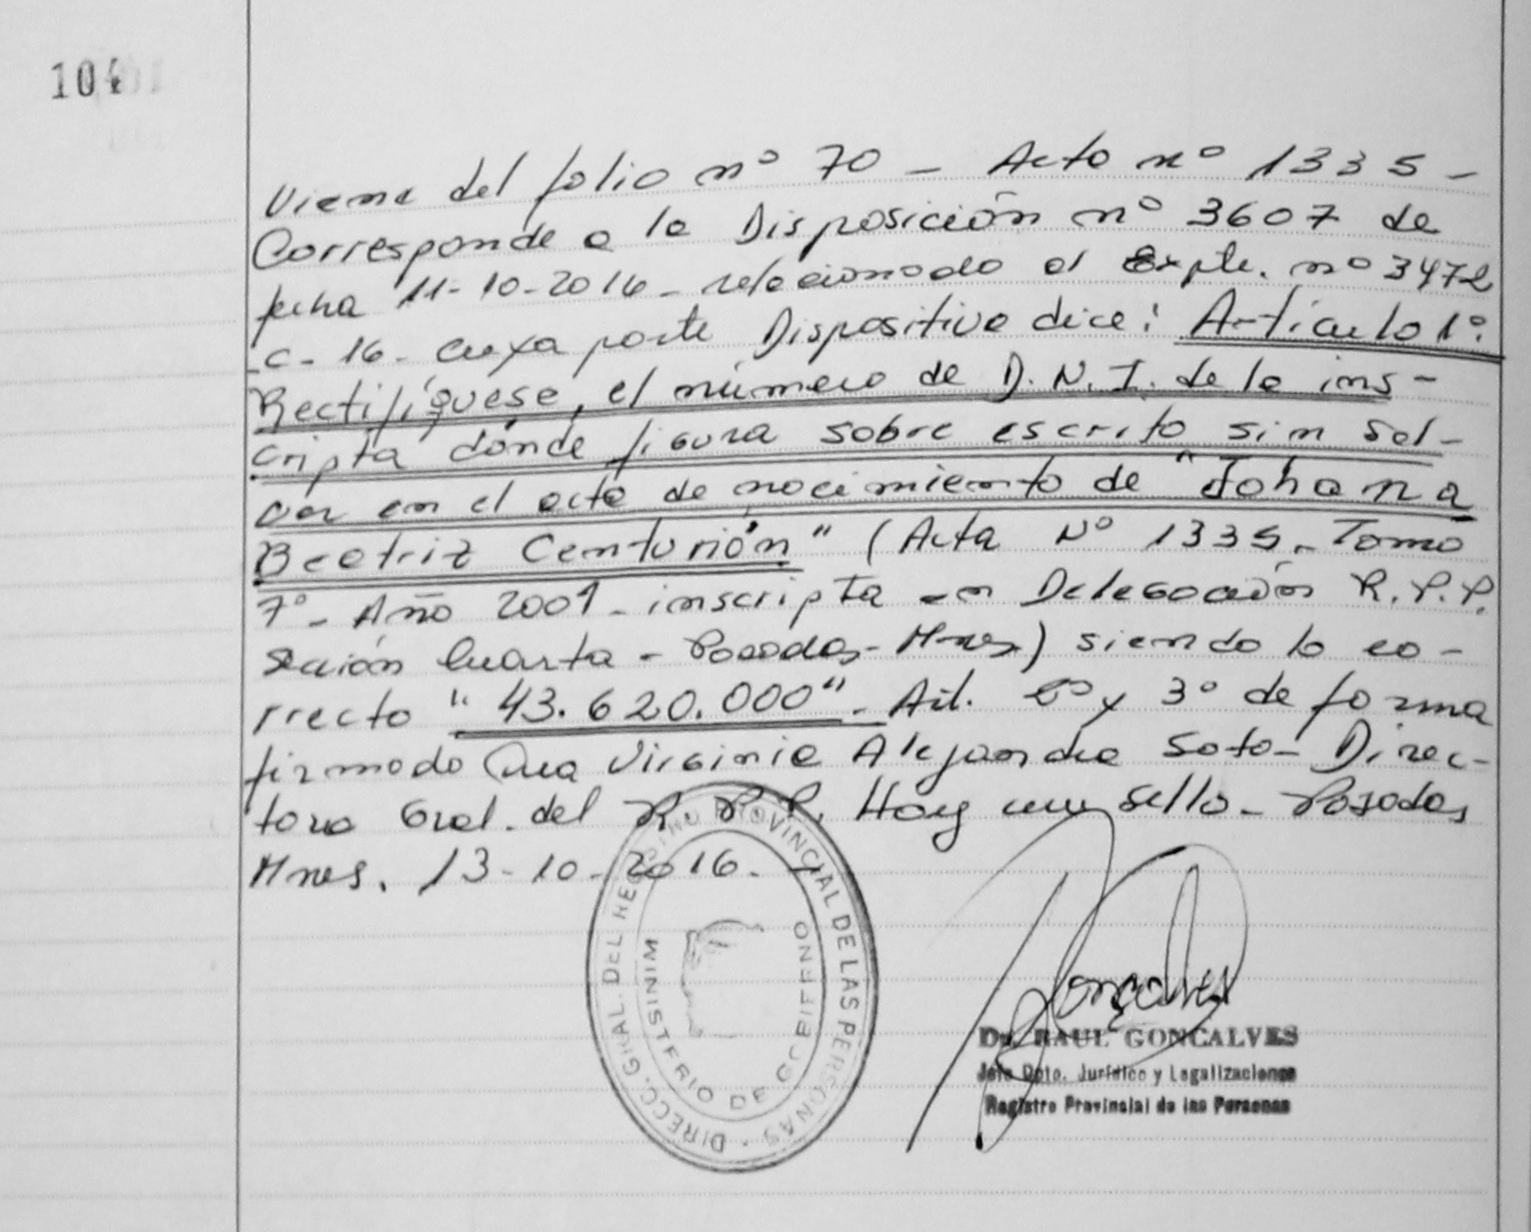 104
Viene del folio nº 70 - Acta nº 1335 -
Corresponde a la Disposición nº 3607 de
fecha 11-10-2016 - relacionado al Expte. nº 3472
-C- 16 - cuya parte Dispositiva dice: Artículo 1º:
Rectifíquese, el número de D.N.I. de la ins-
cripta dónde figura sobre escrito sin sal-
var en el acta de nacimiento de "Johana
Beatriz Centurión" (Acta Nº 1335 - Tomo
7º - Año 2001 - inscripta en Delegación R.P.P.
Sección Cuarta - Posadas - Mnes) siendo lo co-
rrecto "43.620.000" - Art. 2º y 3º de forma
firmado Dra Virginia Alejandra Soto - Direc-
tora Gral. del R.P.P. Hay un sello - Posadas
Mnes. 13-10-2016.-
DIRECC. GRAL. DEL REGISTRO PROVINCIAL DE LAS PERSONAS
MINISTERIO DE GOBIERNO
Gonçalves
Dr. RAUL GONCALVES
Jefe Dpto. Jurídico y Legalizaciones
Registro Provincial de las Personas